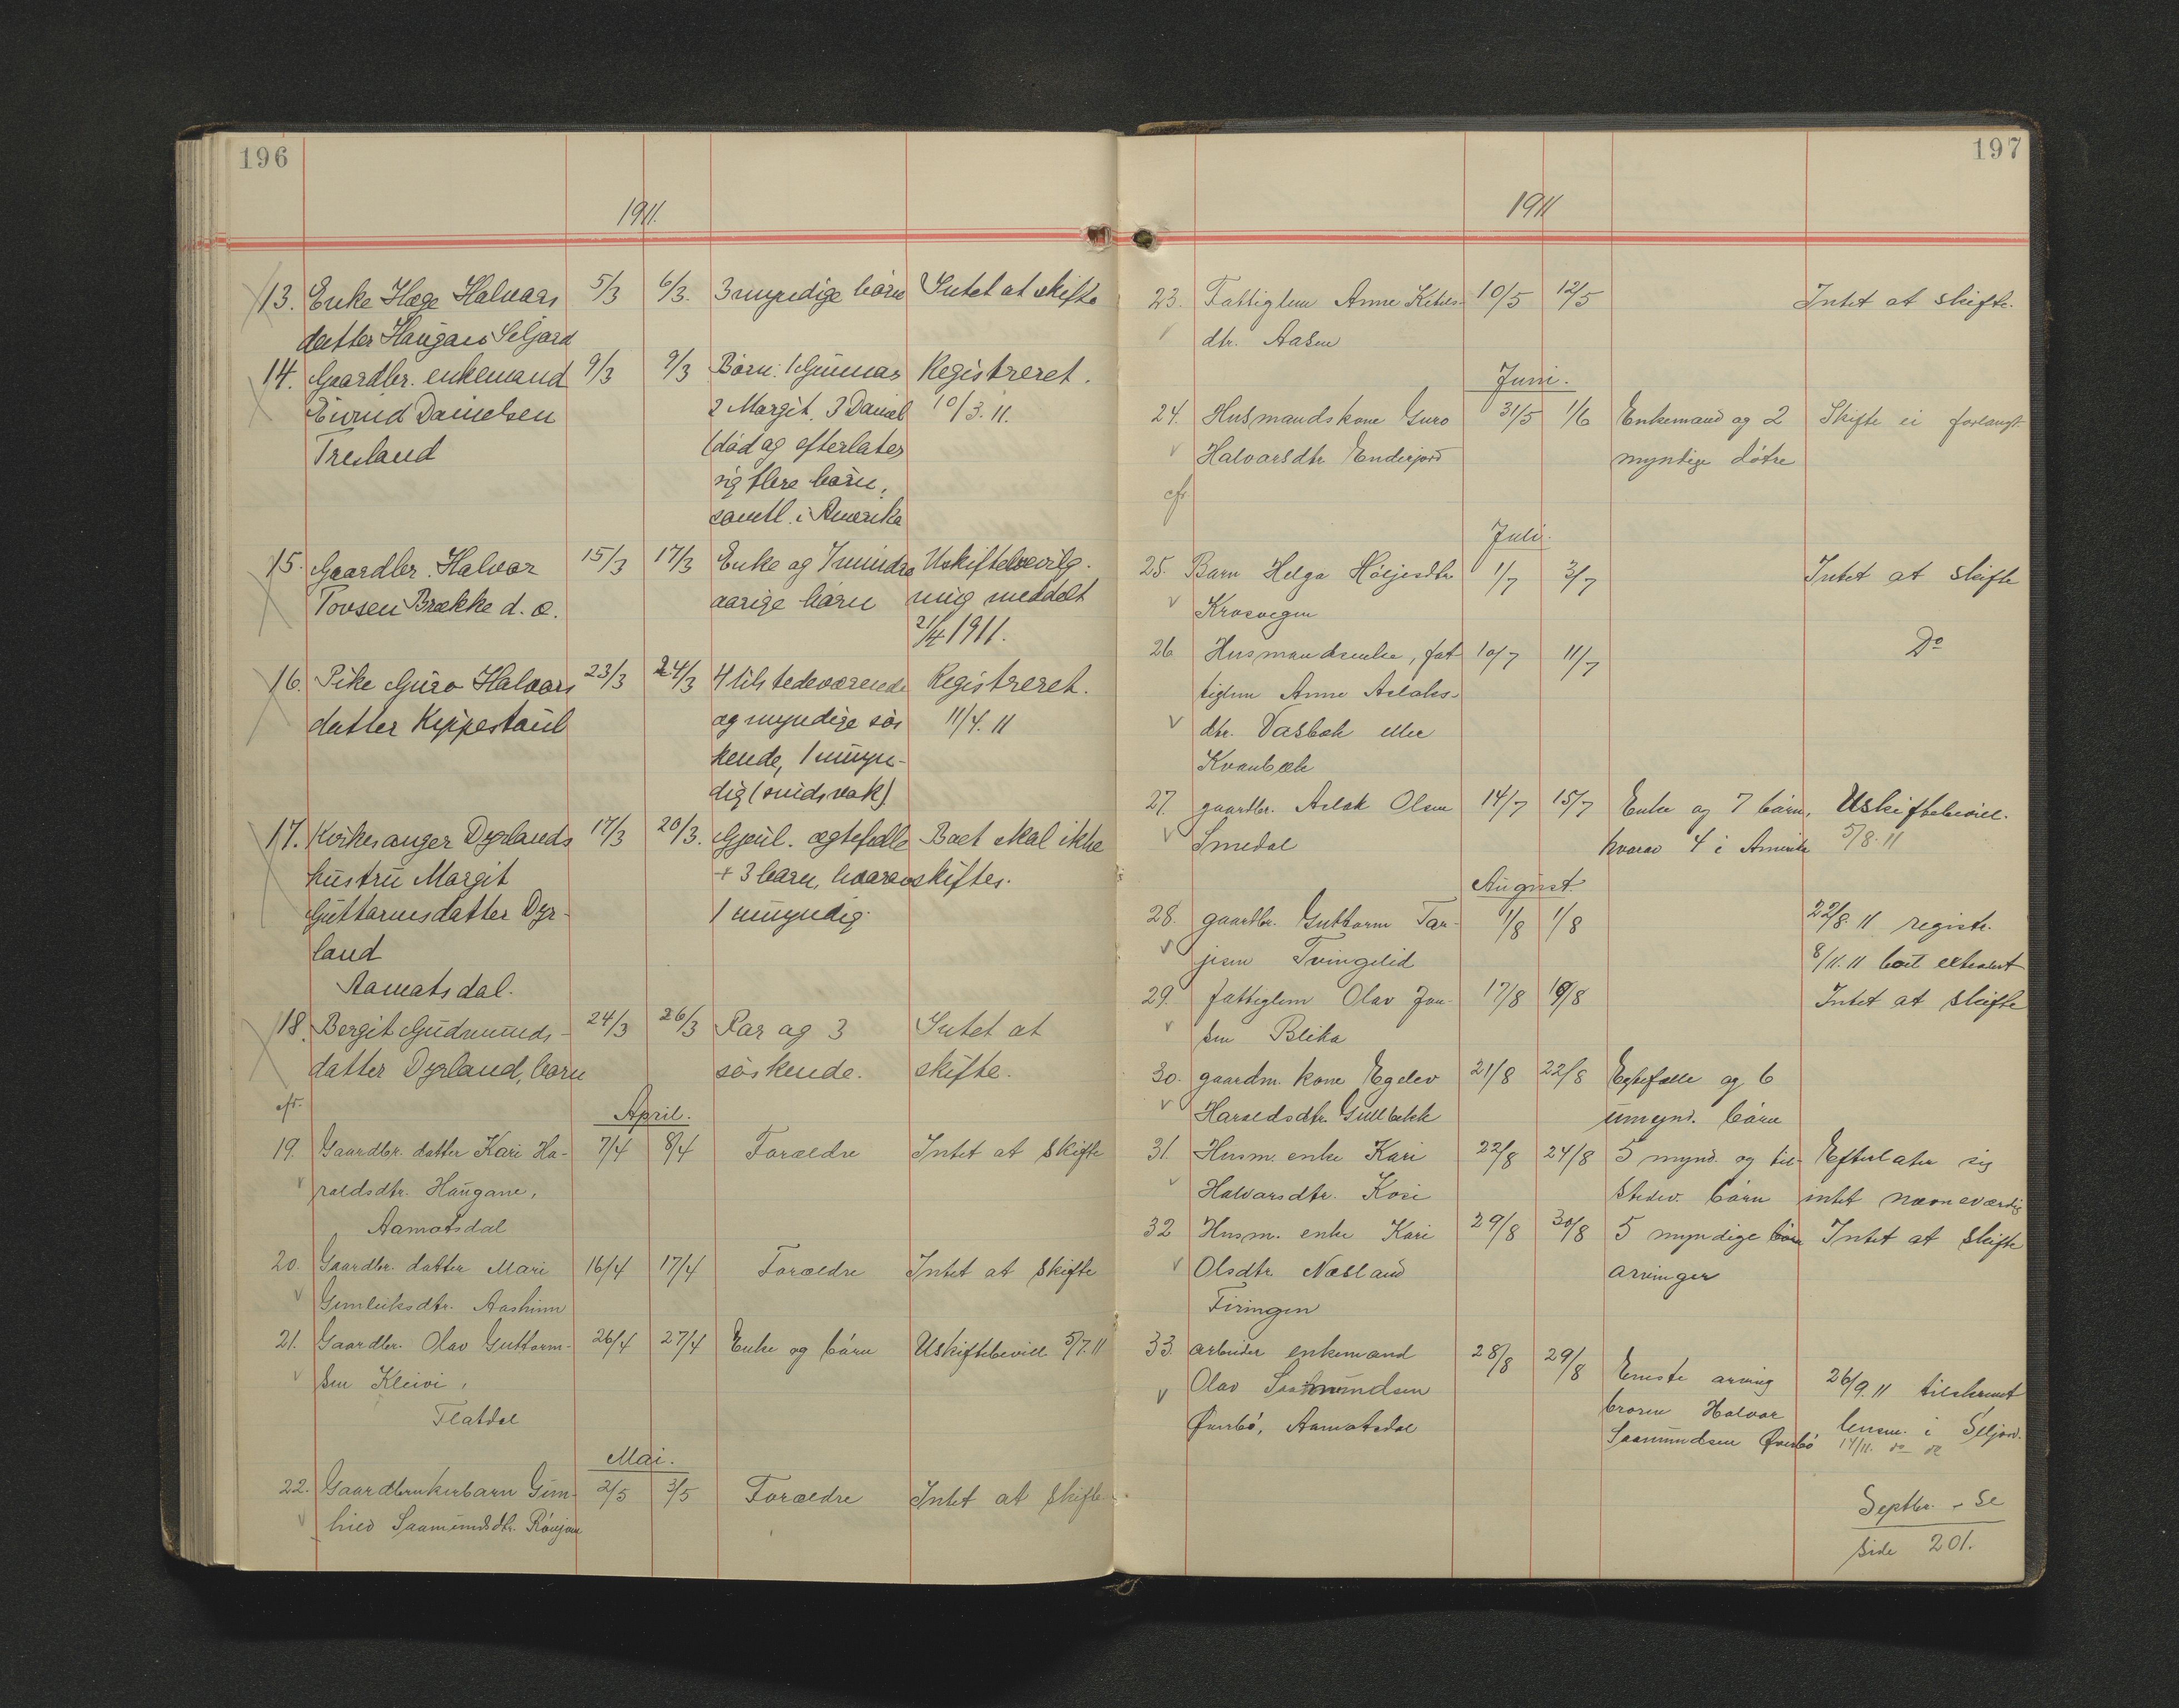 196
1911.
13. Enke Hæge Halvors 5/3 6/3. 3 myndige børn Intet at skifte
datter Haugan Seljord
14. Gaardbr. enkemand 9/3 9/3 Børn: 1 Gunnar Registreret.
Eivind Danielsen 2 Margit. 3 Daniel 10/3. 11.
Treland (død og efterlater
sig flere børn,
samtl. i Amerika
15. Gaardbr. Halvor 15/3 17/3 Enke og 7 mindre Uskiftebevilg-
Tovsen Brække d. æ. aarige børn ning meddelt
21/4 1911.
16. Pike Guro Halvors 23/3 24/3 4 tilstedeværende Registreret.
datter Kippestaul og myndige søs 11/4. 11
kende, 1 umyn-
dig (sindsvak)
17. Kirkesanger Dyrlands 17/3 20/3. Gjenl. ægtefælle Boet skal ikke
hustru Margit + 3 barn, hvorav skiftes.
Guttormsdatter Dyr- 1 umyndig.
land
Aamotsdal.
18. Bergit Gudmunds- 24/3 26/3 Far og 3 Intet at
datter Dyrland, barn søskende. skifte.
eft.
April.
19. Gaardbr. datter Kari Ha- 7/4 8/4 Forældre Intet at skifte
v raldsdtr. Haugane,
Aamotsdal
20. Gaardbr. datter Mari 16/4 17/4 Forældre Intet at skifte
v Gunleiksdtr. Aasheim
21. Gaardbr. Olav Guttorm- 26/4 27/4 Enke og børn Uskiftebevill. 5/7. 11
v sen Kleivi,
Flatdal
Mai.
22. Gaardbrukerbarn Gun- 2/5 3/5 Forældre Intet at skifte
v hild Saamundsdtr. Rønjom
197
1911
23. Fattiglem Anne Ketils- 10/5 12/5 Intet at skifte.
v dtr. Aasen
Juni.
24. Husmandskone Guro 31/5 1/6 Enkemand og 2 Skifte ei forlangt.
v Halvorsdtr. Enderjord myntige døtre
eft
Juli.
25. Barn Helga Høljesdtr. 1/7 3/7 Intet at skifte
v Krosvegen
26 Husmandsenke, fat 10/7 11/7 Do
tiglem Anne Aslaks-
v dtr. Vasbæk eller
Kvanbæk
27. gaardbr. Aslak Olsen 14/7 15/7 Enke og 7 børn, Uskiftebevill.
v Smedal hvorav 4 i Amerika 5/8. 11
August.
28. gaardbr. Guttorm Tar- 1/8 1/8 22/8. 11 registr.
v jesen Tvingelid 8/11. 11 boet extradert
29. fattiglem Olav Jon- 17/8 19/8 Intet at skifte
v sen Blika
30. gaardm. kone Egelev 21/8 22/8 Egtefælle og 6
v Haraldsdtr. Gullbekk umynd. børn
31. Husm. enke Kari 22/8 24/8 5 mynd. og til- Efterlater sig
v Halvorsdtr. Kosi stedev. børn intet nævneværdig
32 Husm. enke Kari 29/8 30/8 5 myndige børn Intet at skifte
v Olsdtr. Næsland arvinger
Firingen
33. arbeider enkemand 28/8 29/8 Eneste arving 26/9. 11 tilskrevet
v Olav Saamundsen broren Halvor lensm. i Seljord.
Øverbø, Aamotsdal Saamundsen Øverbø 14/11. do do
Septbr. - se
side 201.